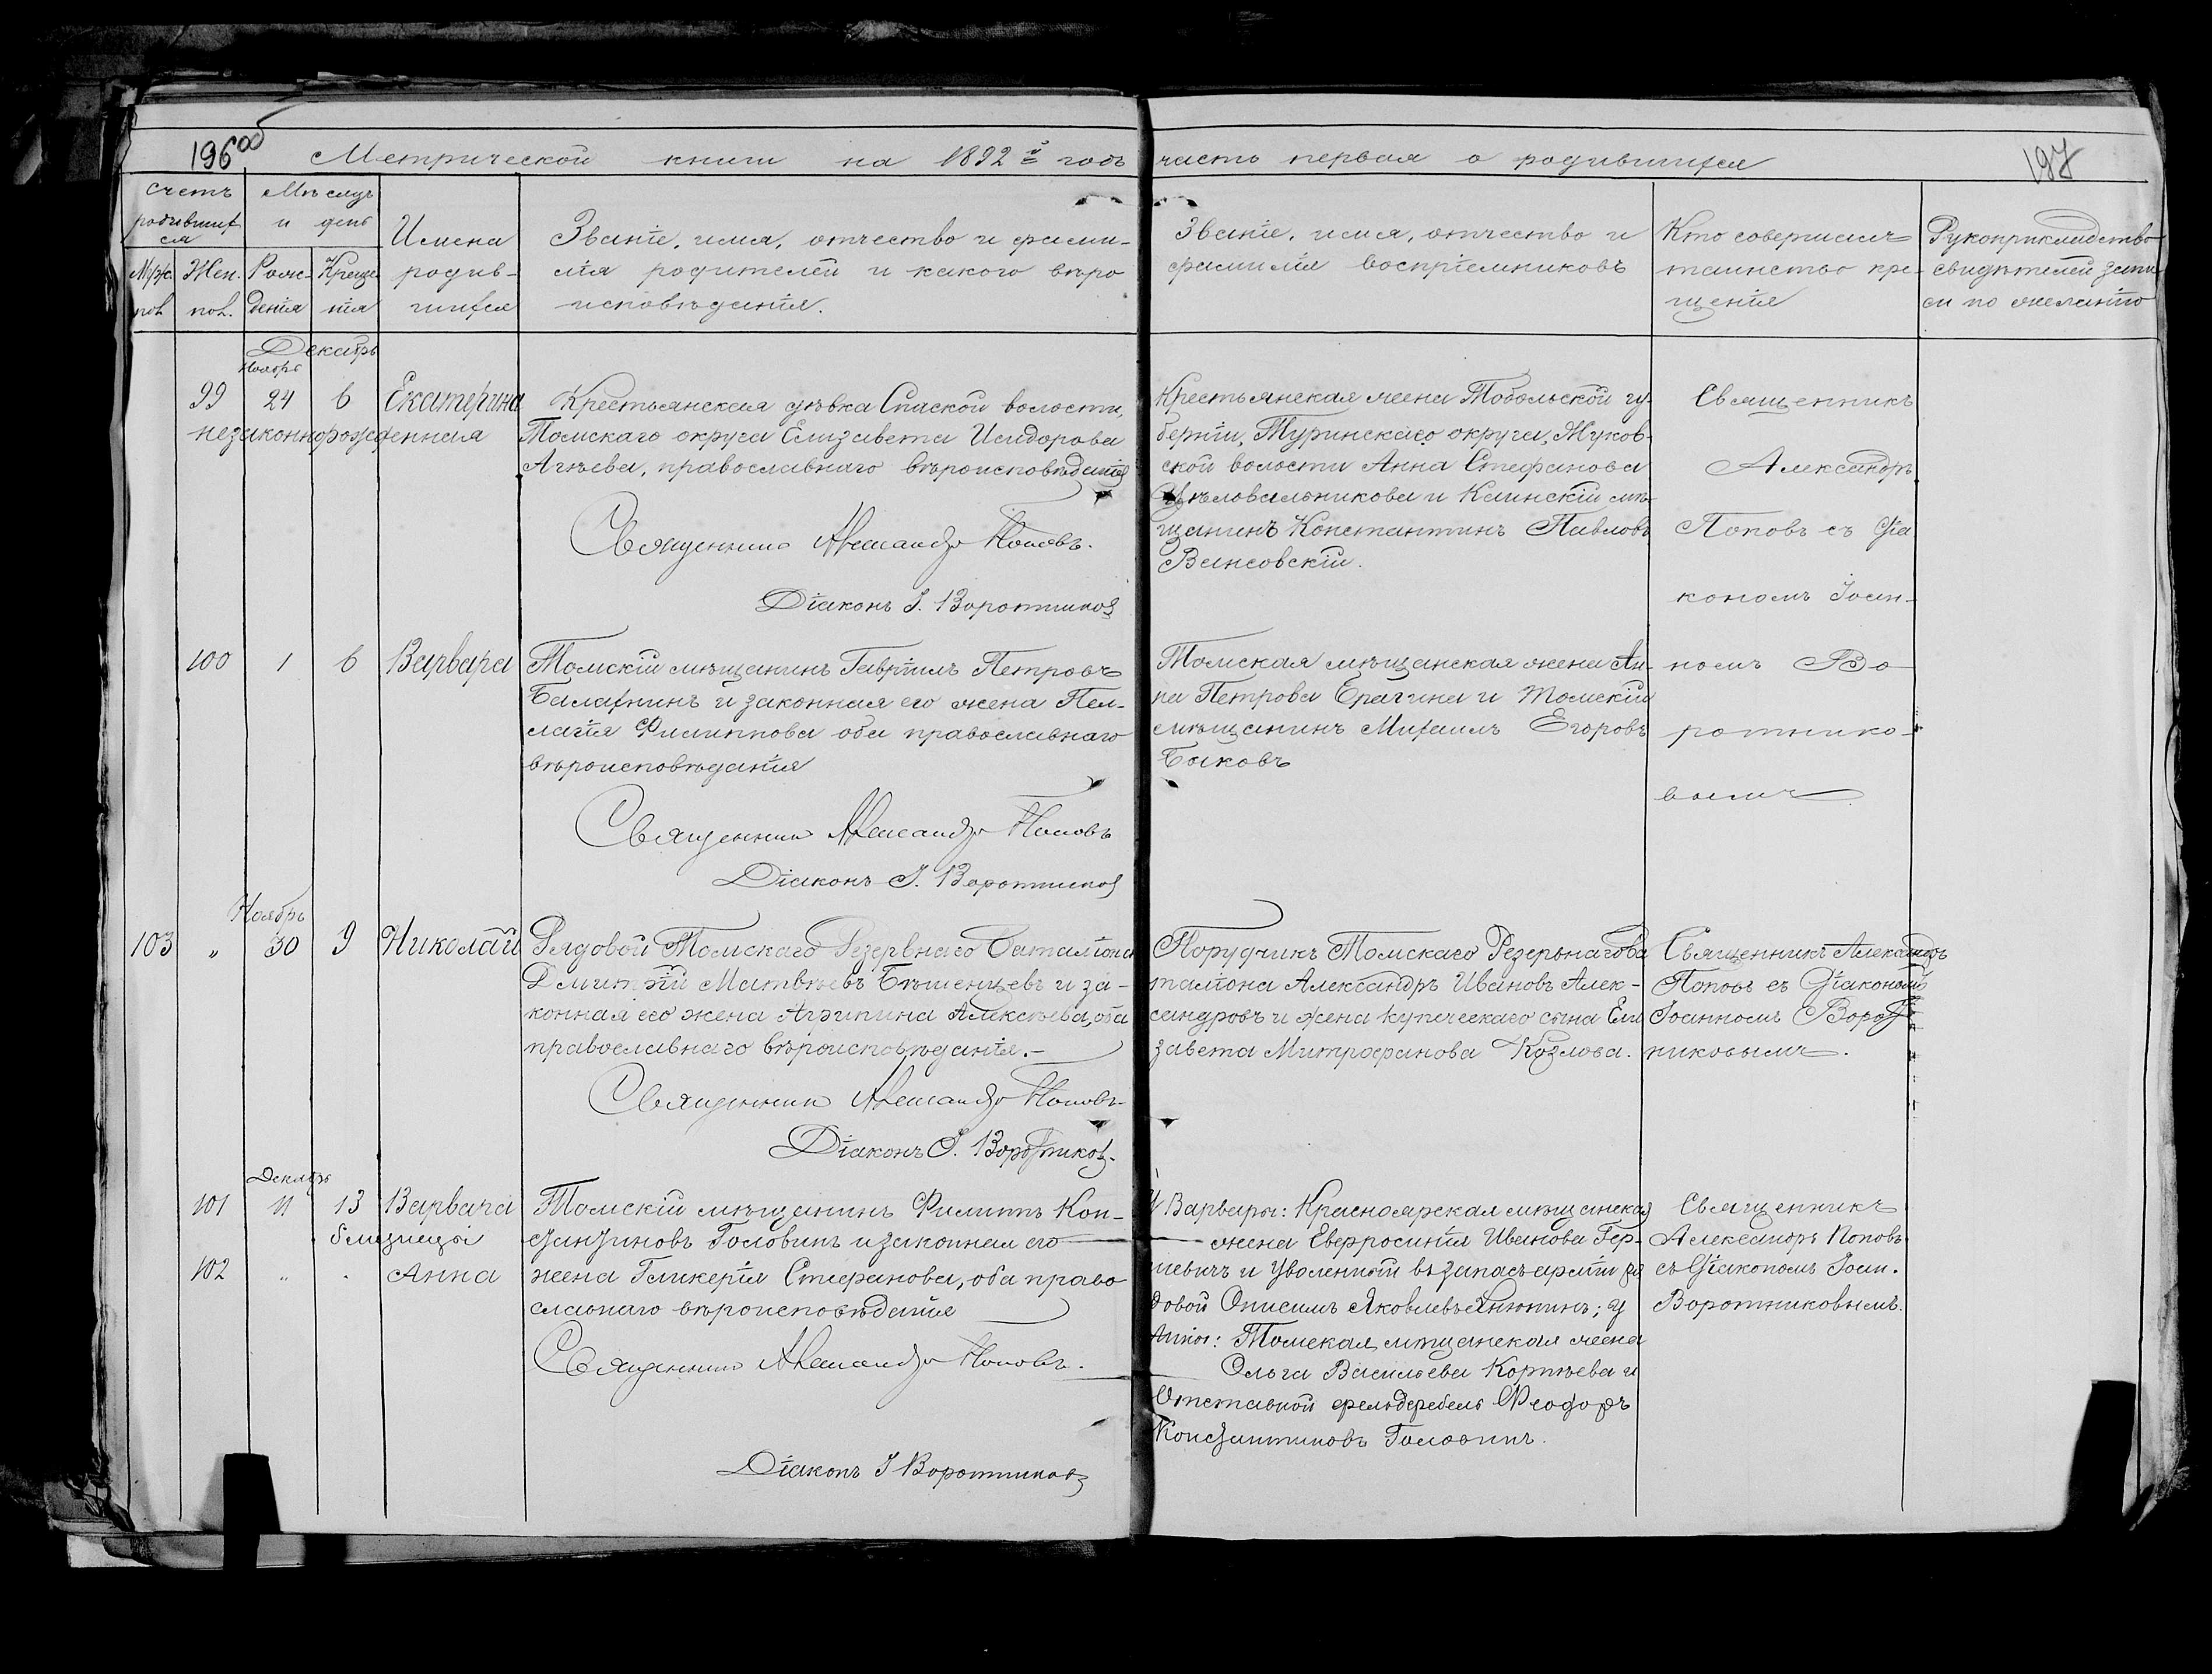 196об
Метрической книги на 1892й годъ часть первая о родившихся
197
Счетъ родившихся
Мѣсяцъ и день
Имена родившихся
Званіе, имя, отчество и фами-
лія родителей и какого вѣро
исповѣданія.
Званіе, имя, отчество и
фамилія воспріемниковъ
Кто совершалъ
таинство кре-
щенія
Рукоприкладство
свидѣтелей запи
си по желанію
Муж. пол.
Жен. пол.
Рожденія
Крещенія
Декабрь
Ноябрь
99 24 6 Екатерина
незаконнорожденная
Крестьянская дѣвка Спаской волости,
Томскаго округа Елизавета Исидорова
Агѣева, православнаго вѣроисповѣданія
Священникъ Александръ Поповъ.
Діаконъ І. Воротниковъ
Крестьянская жена Тобольской гу-
берніи, Туринскаго округа, Жуков-
ской волости Анна Стефанова
Цѣловальникова и Каинскій мѣ-
щанинъ Константинъ Павловъ
Священникъ
Александръ
Поповъ съ діа
кономъ Іоан-
номъ Во-
ротнико-
вымъ
100 1 6 Варвара
Томскій мѣщанинъ Гавріилъ Петровъ
Балахнинъ и законная его жена Пел-
лагія Филиппова оба православнаго
вѣроисповѣданія
Священникъ Александръ Поповъ
Діаконъ І. Воротниковъ
Томская мѣщанская жена Ан-
на Петрова Ерагина и Томскій
мѣщанинъ Михаилъ Егоровъ
Быковъ
Ноябрь
103 " 30 9 Николай
Рядовой Томскаго Резервнаго Баталіона
Дмитрій Матвѣевъ Бѣшенцевъ и за-
конная его жена Агрипина Алексѣева, оба
православнаго вѣроисповѣданія.-
Священникъ Александръ Поповъ
Діаконъ І. Воротниковъ.
Поручикъ Томскаго Резервнаго Ба
таліона Александръ Ивановъ Алек-
сандровъ и жена купеческаго сына Ели
завета Митрофанова Козлова.
Священникъ Александръ
Поповъ съ Діакономъ
Іоанномъ Ворот
никовымъ.
Декабрь
101 11 13 Варвара
близнецы
102 " . Анна
Томскій мѣщанинъ Филиппъ Кон-
стантиновъ Головинъ и законная его
жена Гликерія Стефанова, оба право
славнаго вѣроисповѣданія
Священникъ Александръ Поповъ.
Діаконъ І Воротниковъ
У Варвары: Красноярская мѣщанская
жена Евфросинія Иванова Гер-
и Уволенный въ запасъ арміи ря
довой Онисимъ Яковлевъ; у
Анны: Томская мѣщанская жена
Ольга Васильева Корнѣева и
Отставной фельдфебель Феодоръ
Константиновъ Головинъ.
Священникъ
Александръ Поповъ
съ Діакономъ Іоан.
Воротниковымъ.